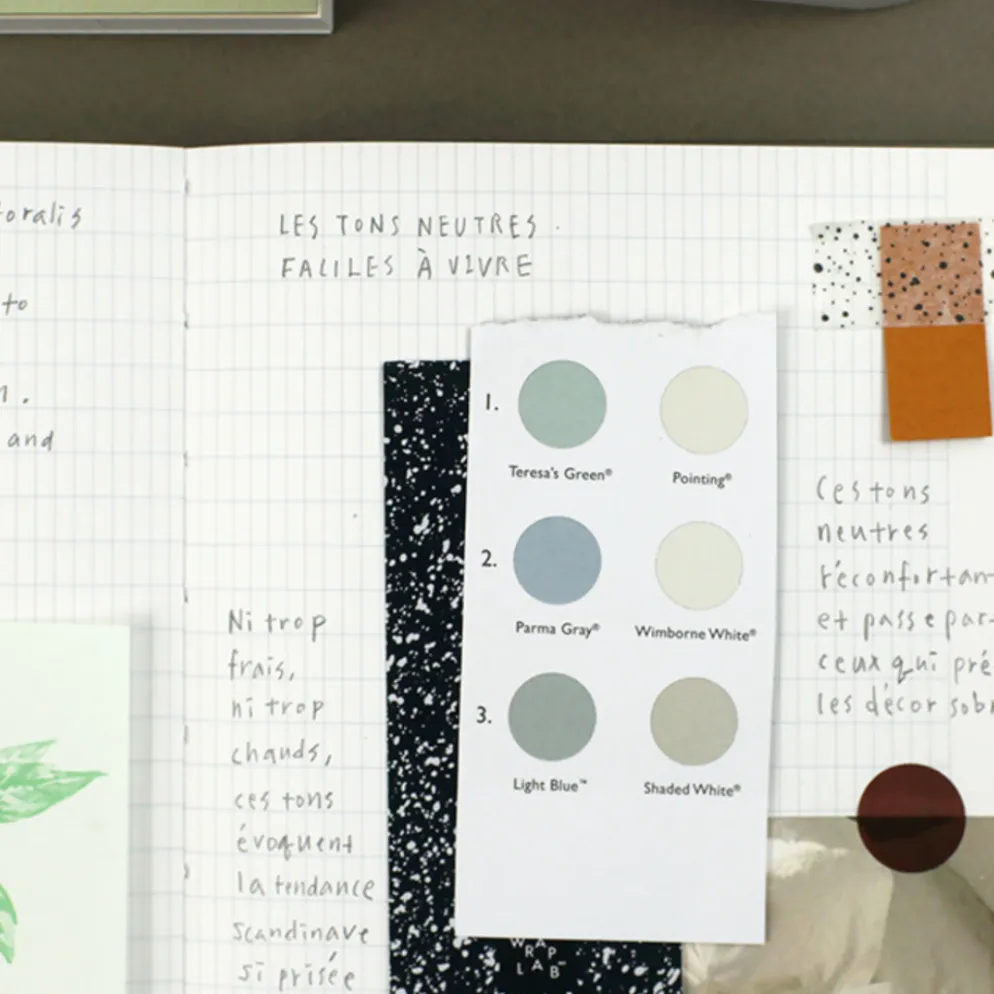 oralis
to
and
LES TONS NEUTRES
FACILES À VIVRE
1.
Teresa's Green® Pointing®
2.
Parma Gray® Wimborne White®
3.
Light Blue™ Shaded White®
Ni trop
frais,
ni trop
chauds,
ces tons
évoquent
la tendance
scandinave
si prisée
WRAP
LAB
Ces tons
neutres
réconfortan
et passepar-
ceux qui pré
les décor sob